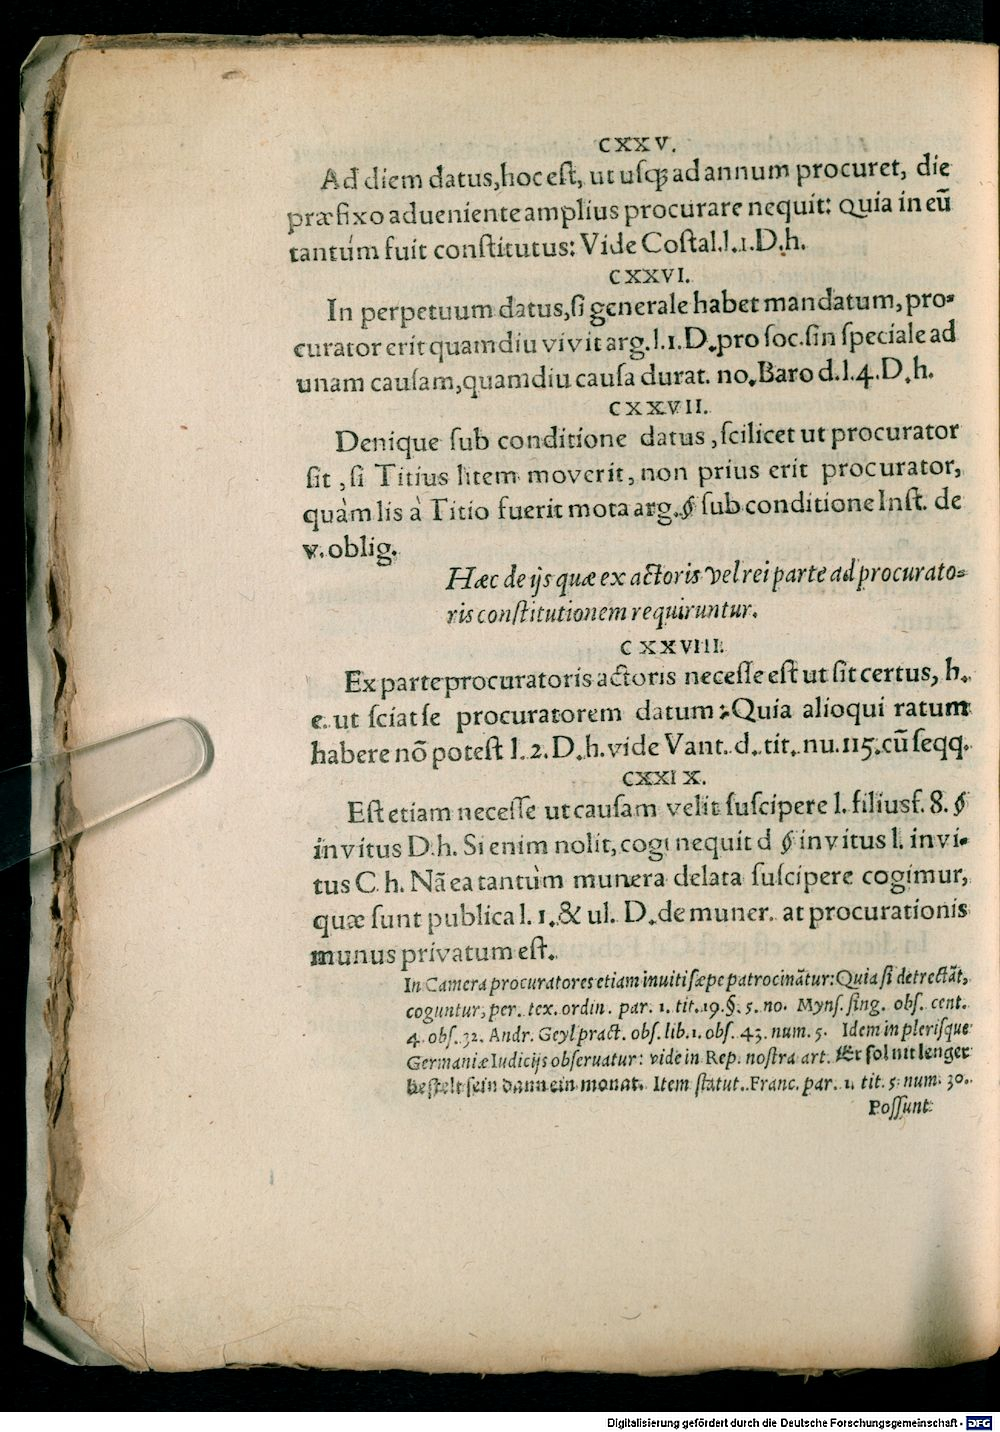 CXXV.
Ad diem datus, hoc eſt, ut uſq; ad annum procuret, die
præfixo adueniente amplius procurare nequit: Quia in eũ
tantùm fuit conſtitutus: Vide Coſtal. l. 1. D. h.
CXXVI.
In perpetuum datus, ſi generale habet mandatum, pro-
curator erit quamdiu vivit arg. l. 1. D. pro ſoc. ſin ſpeciale ad
unam cauſam, quamdiu cauſa durat. no. Baro d. l. 4. D. h.
CXXVII.
Denique ſub conditione datus, ſcilicet ut procurator
ſit, ſi Titius litem moverit, non prius erit procurator,
quàm lis à Titio fuerit mota arg. § ſub conditione Inſt. de
v. oblig.
Hæc de ijs quæ ex actoris vel rei parte ad procurato-
ris conſtitutionem requiruntur.
CXXVIII.
Ex parte procuratoris actoris neceſſe eſt ut ſit certus, h.
e. ut ſciat ſe procuratorem datum: Quia alioqui ratum
habere nõ poteſt l. 2. D. h. vide Vant. d. tit. nu. 115. cũ ſeqq.
CXXIX.
Eſt etiam neceſſe ut cauſam velit ſuſcipere l. filiusf. 8. §
invitus D. h. Si enim nolit, cogi nequit d § invitus l. invi-
tus C. h. Nã ea tantùm munera delata ſuſcipere cogimur,
quæ ſunt publica l. 1. & ul. D. de muner. at procurationis
munus privatum eſt.
In Camera procuratores etiam inuiti ſæpe patrocinãtur: Quia ſi detrectãt,
coguntur, per. tex. ordin. par. 1. tit. 19. §. 5. no. Mynſ. ſing. obſ. cent.
4. obſ. 32. Andr. Geyl pract. obſ. lib. 1. obſ. 43. num. 5. Idem in pleriſque
Germaniæ Iudicijs obſeruatur: vide in Rep. noſtra art. Er ſol nit lenger
beſtelt ſein dann ein monat. Item ſtatut. Franc. par. 1. tit. 5. num. 30.
Poſſunt
Digitalisierung gefördert durch die Deutsche Forschungsgemeinschaft - DFG